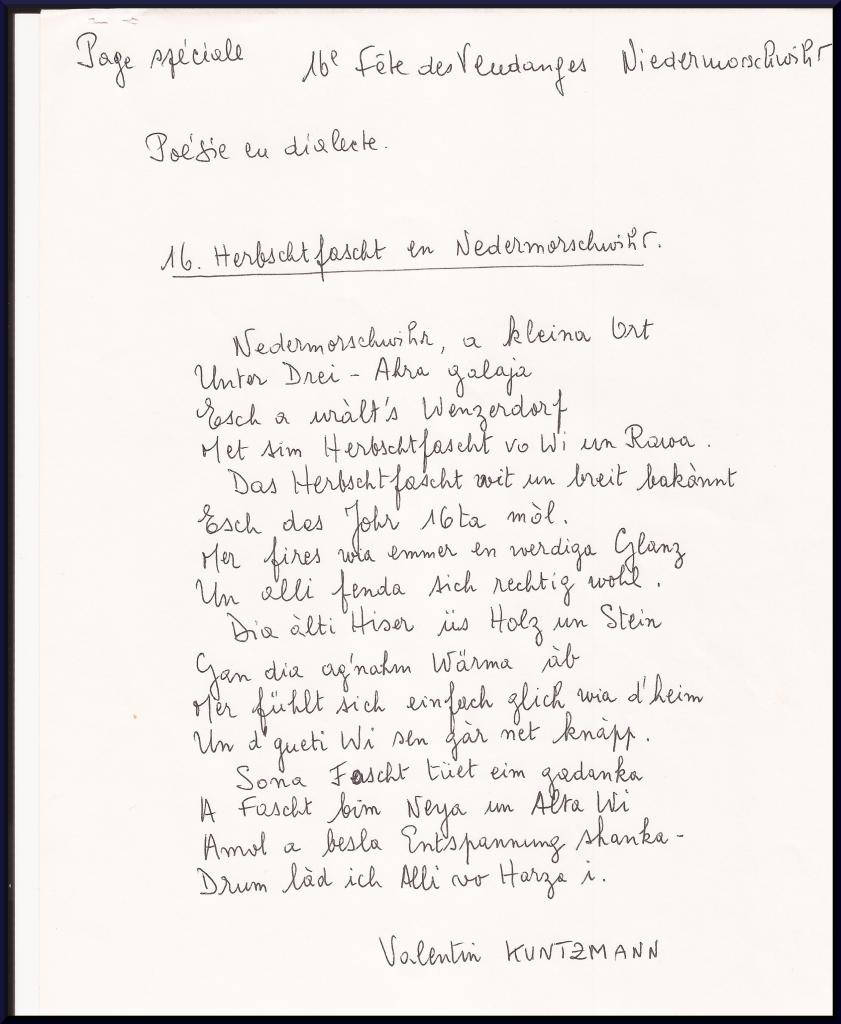 Page spéciale 16e Fête des Vendanges Niedermorschwihr
Poésie en dialecte.
16. Herbschtfascht en Nedermorschwihr.
Nedermorschwihr, a kleina Ort
Unter Drei - Ahra galaja
Esch a uràlt's Wenzerdorf
Met sim Herbschtfascht vo Wi un Rawa.
Das Herbschtfascht wit un breit bakànnt
Esch das Johr 16ta mòl.
Mer fires wia emmer en werdiga Glanz
Un alli fenda sich rechtig wohl.
Dia àlti Hiser üs Holz un Stein
Gan dia ag'nahm Wärma àb
Mer fühlt sich einfach glich wia d'heim
Un d'gueti Wi sen gàr net knàpp.
Sona Fascht tüet eim gadanka
A Fascht bim Neya un Alta Wi
Amol a besla Entspannung shanka -
Drum làd ich Alli vo Harza i.
Valentin KUNTZMANN